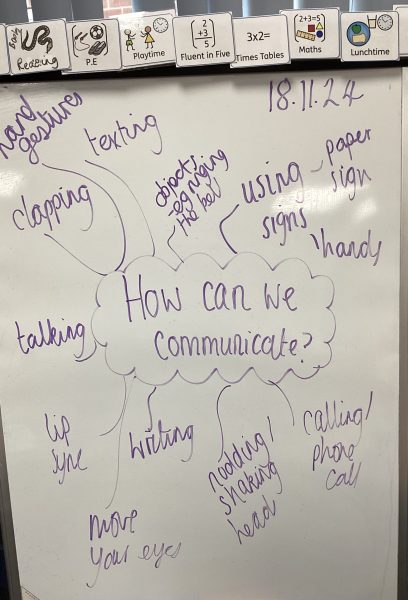 Reading
P.E
Playtime
2
+3
5
Fluent in Five
3x2=
Times Tables
2+3=5
Maths
Lunchtime
18.11.24
hand
gestures
texting
clapping
objects
-eg ringing
the bell
using
signs
paper
sign
hands
How can we
communicate?
talking
lip
sync
writing
move
your eyes
nodding/
shaking
head
calling/
phone
call